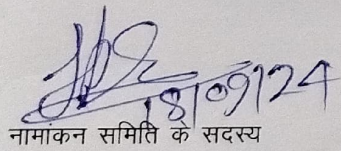 18/09/24
नामांकन समिति के सदस्य